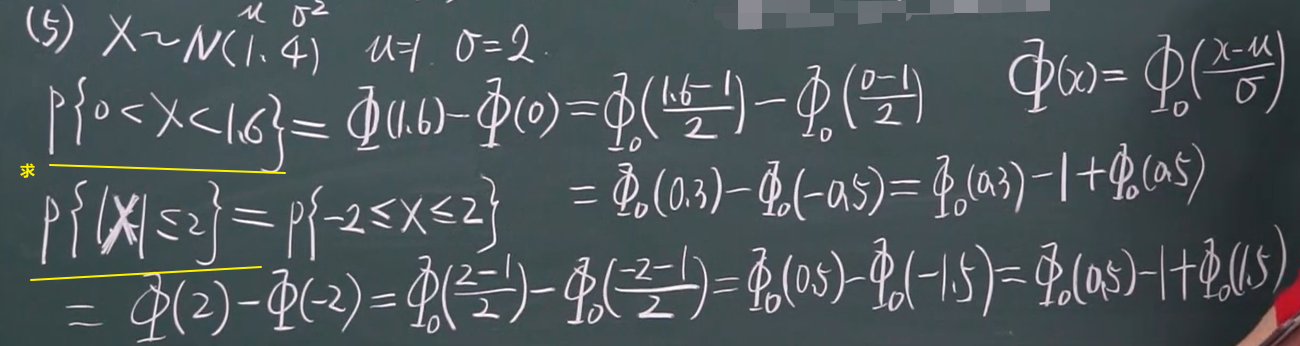 (5) X~N(1.4) μ σ² μ=1 σ=2.
Φ(x)=Φ₀((x-μ)/σ)
P{0<X<1.6}=Φ(1.6)-Φ(0)=Φ₀((1.6-1)/2)-Φ₀((0-1)/2)
求
=Φ₀(0.3)-Φ₀(-0.5)=Φ₀(0.3)-1+Φ₀(0.5)
P{|X|≤2}=P{-2≤X≤2}
=Φ(2)-Φ(-2)=Φ₀((2-1)/2)-Φ₀((-2-1)/2)=Φ₀(0.5)-Φ₀(-1.5)=Φ₀(0.5)-1+Φ₀(1.5)